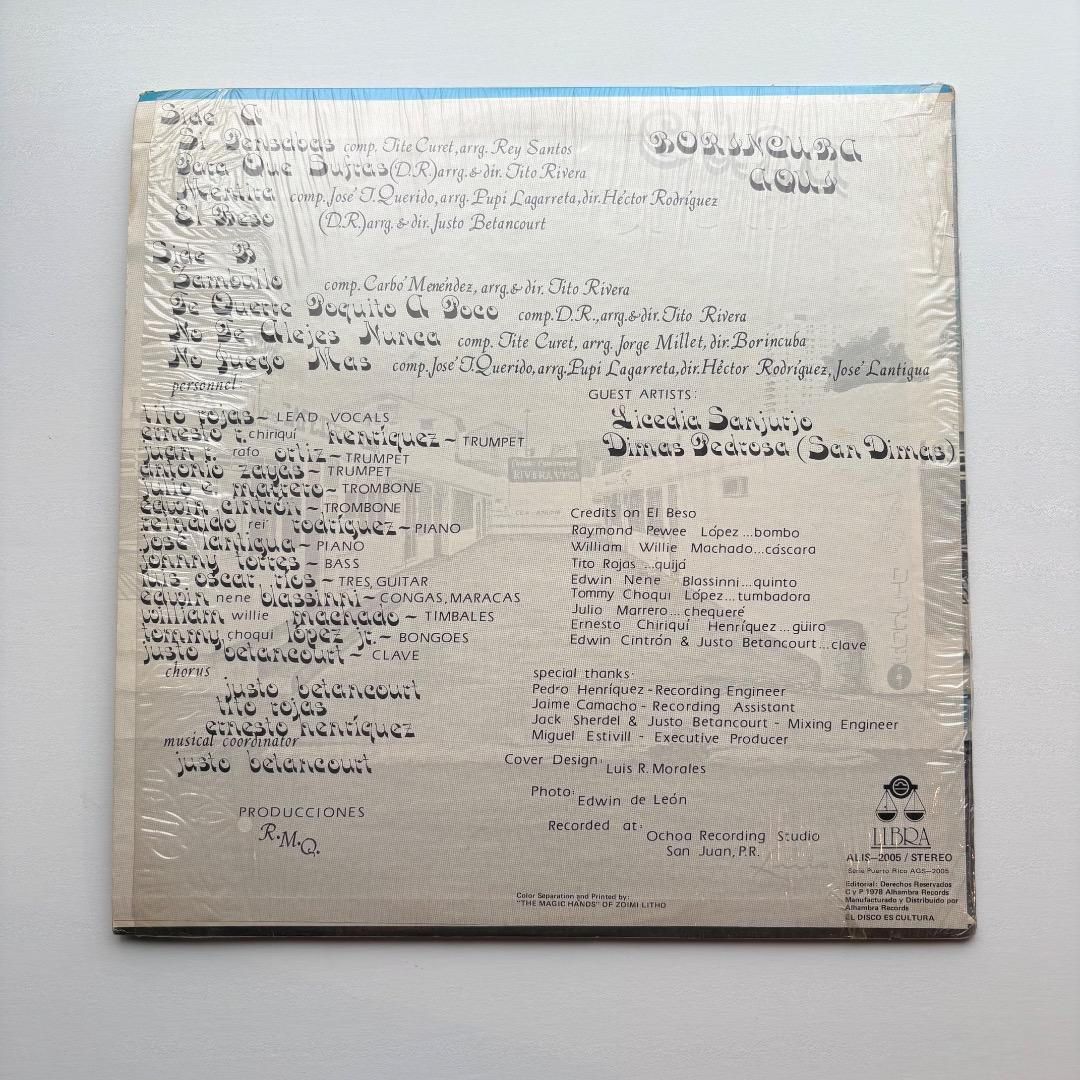 Side A
Si Pensabas comp. Tite Curet, arrg. Rey Santos
Para Que Sufras (D.R.) arrg. & dir. Tito Rivera
Mentira comp. José T. Querido, arrg. Pupi Lagarreta, dir. Héctor Rodríguez
El Beso (D.R.) arrg. & dir. Justo Betancourt
BORINCUBA
AQUI
Side B
Sambullo comp. Carbó Menéndez, arrg. & dir. Tito Rivera
Te Querre Poquito A Poco comp. D.R., arrg. & dir. Tito Rivera
No Te Alejes Nunca comp. Tite Curet, arrg. Jorge Millet, dir. Borincuba
No Juego Mas comp. José T. Querido, arrg. Pupi Lagarreta, dir. Héctor Rodríguez, José Lantigua
personnel:
tito rojas~ LEAD VOCALS
ernesto r. chiriquí henríquez~ TRUMPET
juan r. rafo ortiz~ TRUMPET
antonio zayas~ TRUMPET
julio e. marrero~ TROMBONE
edwin cintrón~ TROMBONE
reinaldo rei rodríguez~ PIANO
josé lantigua~ PIANO
jonnny torres~ BASS
luis oscar ríos~ TRES, GUITAR
edwin nene blassinni~ CONGAS, MARACAS
william willie machado~ TIMBALES
tommy choqui lópez jr.~ BONGOES
justo betancourt~ CLAVE
chorus
justo betancourt
tito rojas
ernesto henríquez
musical coordinator
justo betancourt
PRODUCCIONES
R.M.Q.
GUEST ARTISTS:
Licedia Sanjurjo
Dimas Pedrosa (San Dimas)
RIVERA VEGA
Credits on El Beso
Raymond Pewee López...bombo
William Willie Machado...cáscara
Tito Rojas ...quijá
Edwin Nene Blassinni...quinto
Tommy Choqui López...tumbadora
Julio Marrero...chequeré
Ernesto Chiriquí Henríquez...güiro
Edwin Cintrón & Justo Betancourt...clave
special thanks:
Pedro Henríquez - Recording Engineer
Jaime Camacho - Recording Assistant
Jack Sherdel & Justo Betancourt - Mixing Engineer
Miguel Estivill - Executive Producer
Cover Design: Luis R. Morales
Photo: Edwin de León
Recorded at: Ochoa Recording Studio
San Juan, P.R.
Color Separation and Printed by:
"THE MAGIC HANDS" OF ZOIMI LITHO
LIBRA
ALIS—2005 / STEREO
Serie Puerto Rico AGS—2005
Editorial: Derechos Reservados
C y P 1978 Alhambra Records
Manufacturado y Distribuido por
Alhambra Records
EL DISCO ES CULTURA